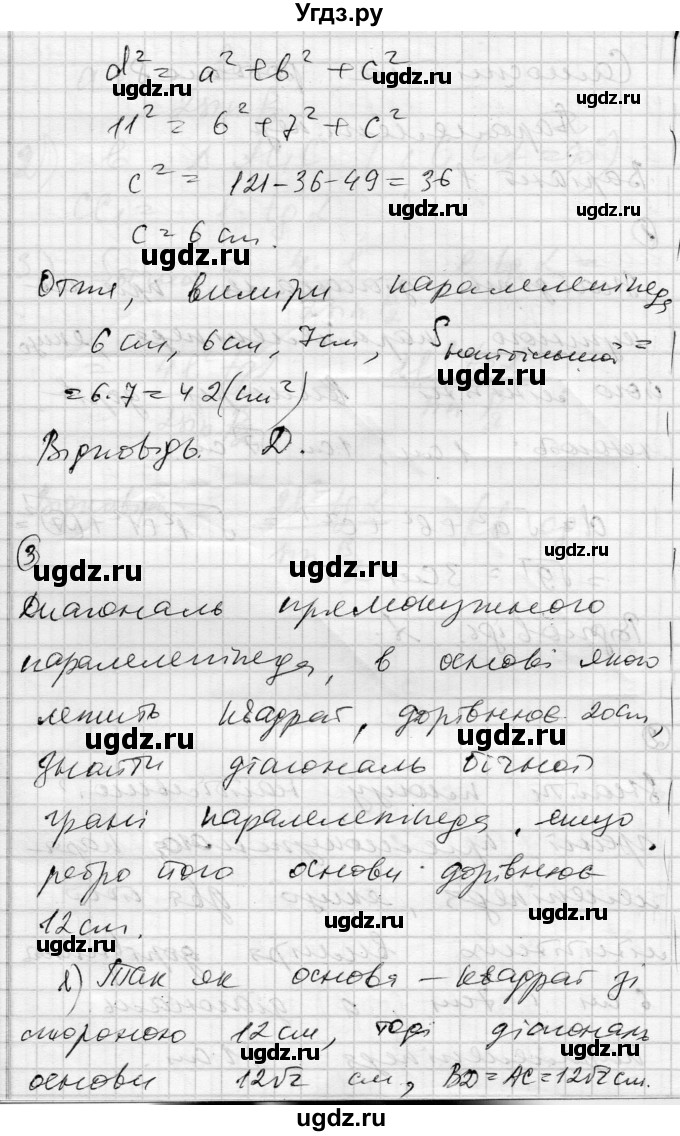 Угдз.ру
d² = a² + в² + c²
ugdz.ru ugdz.ru
11² = 6² + 7² + c²
c² = 121-36-49 = 36
ugdz.ru
c = 6 см.
ugdz.ru
Отже, виміри паралелепіпеда
6 см, 6 см, 7 см, Sнайбільшої =
ugdz.ru ugdz.ru
= 6·7 = 42 (см²)
Відповідь. Д.
ugdz.ru
ugdz.ru
③
ugdz.ru ugdz.ru
Диагональ прямокутного
паралелепіпеда, в основі якого
ugdz.ru
лежить квадрат, дорівнює 20см,
ugdz.ru ugdz.ru
Знайти діагональ бічної
грані паралелепіпеда, якщо
ugdz.ru
ребро його основи дорівнює
12 см.
ugdz.ru ugdz.ru
Так як основа – квадрат зі
стороною 12 см, тоді діагональ
ugdz.ru ugdz.ru
основи 12√2 см, BD = AC = 12√2 см.
ugdz.ru